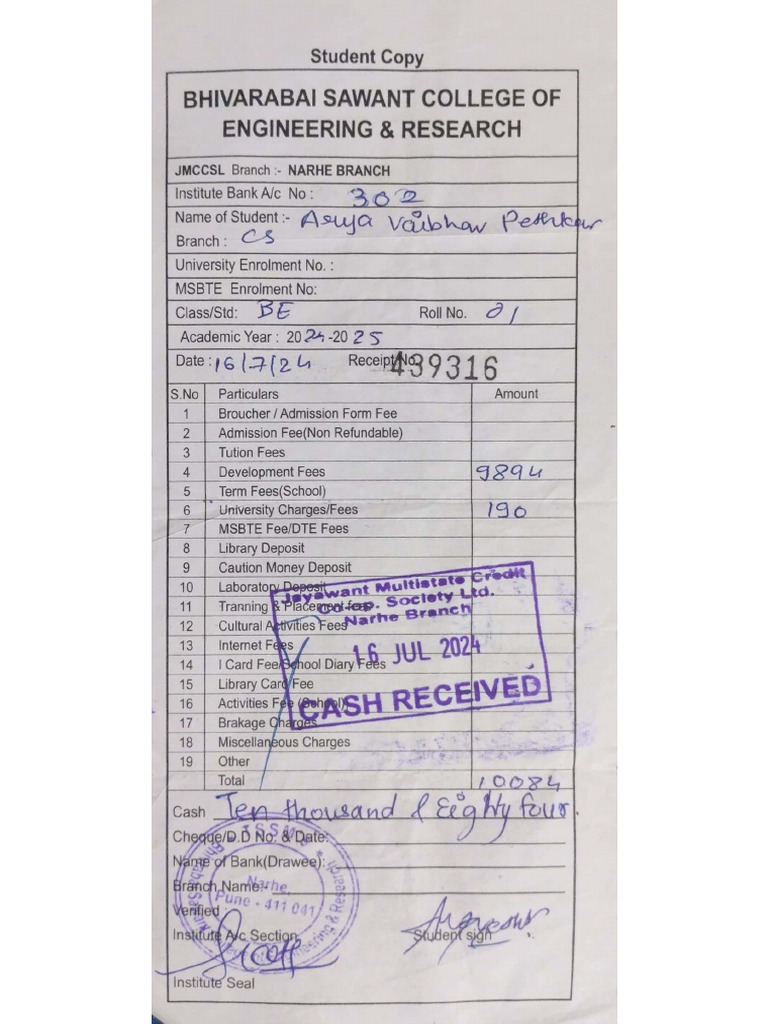 Student Copy
BHIVARABAI SAWANT COLLEGE OF
ENGINEERING & RESEARCH
JMCCSL Branch :- NARHE BRANCH
Institute Bank A/c No : 302
Name of Student :- Arya Vaibhav Pethkar
Branch : CS
University Enrolment No. :
MSBTE Enrolment No:
Class/Std: BE Roll No. 01
Academic Year : 2024-2025
Date : 16/7/24 Receipt No. 439316
S.No Particulars Amount
1 Broucher / Admission Form Fee
2 Admission Fee(Non Refundable)
3 Tution Fees
4 Development Fees 9894
5 Term Fees(School)
6 University Charges/Fees 190
7 MSBTE Fee/DTE Fees
8 Library Deposit
9 Caution Money Deposit
10 Laboratory Deposit
11 Tranning & Placement fees
12 Cultural Activities Fees
13 Internet Fees
14 I Card Fee/School Diary Fees
15 Library Card Fee
16 Activities Fee (School)
17 Brakage Charges
18 Miscellaneous Charges
19 Other
Total 10084
Jayawant Multistate Credit
Co-op. Society Ltd.
Narhe Branch
16 JUL 2024
CASH RECEIVED
Cash Ten thousand & Eighty four.
Cheque/D.D No. & Date:
Name of Bank(Drawee):
Branch Name:-
Verified
Institute A/c Section Student sign
Institute Seal
Narhe,
Pune - 411 041